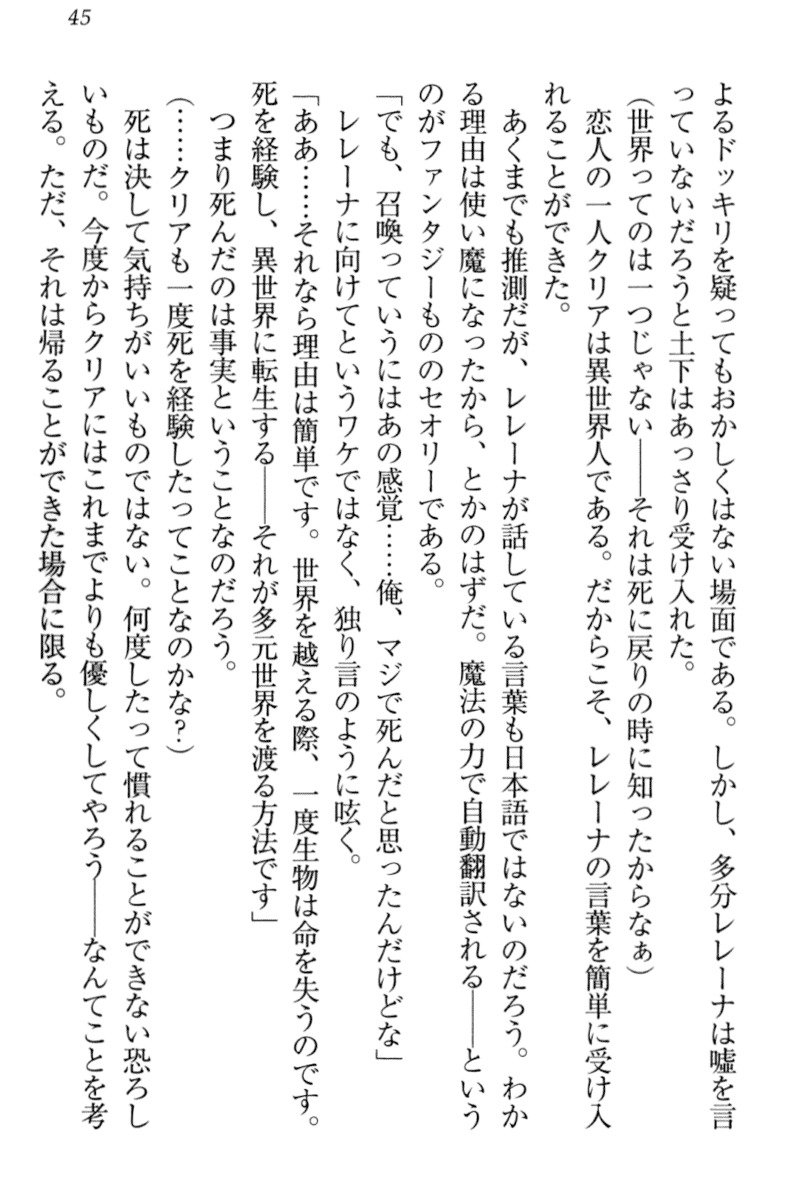 45
よるドッキリを疑ってもおかしくはない場面である。しかし、多分レレーナは嘘を言
っていないだろうと土下はあっさり受け入れた。
（世界ってのは一つじゃない――それは死に戻りの時に知ったからなぁ）
恋人の一人クリアは異世界人である。だからこそ、レレーナの言葉を簡単に受け入
れることができた。
あくまでも推測だが、レレーナが話している言葉も日本語ではないのだろう。わか
る理由は使い魔になったから、とかのはずだ。魔法の力で自動翻訳される――という
のがファンタジーもののセオリーである。
「でも、召喚っていうにはあの感覚……俺、マジで死んだと思ったんだけどな」
レレーナに向けてというワケではなく、独り言のように呟く。
「ああ……それなら理由は簡単です。世界を越える際、一度生物は命を失うのです。
死を経験し、異世界に転生する――それが多元世界を渡る方法です」
つまり死んだのは事実ということなのだろう。
（……クリアも一度死を経験したってことなのかな？）
死は決して気持ちがいいものではない。何度したって慣れることができない恐ろし
いものだ。今度からクリアにはこれまでよりも優しくしてやろう――なんてことを考
える。ただ、それは帰ることができた場合に限る。